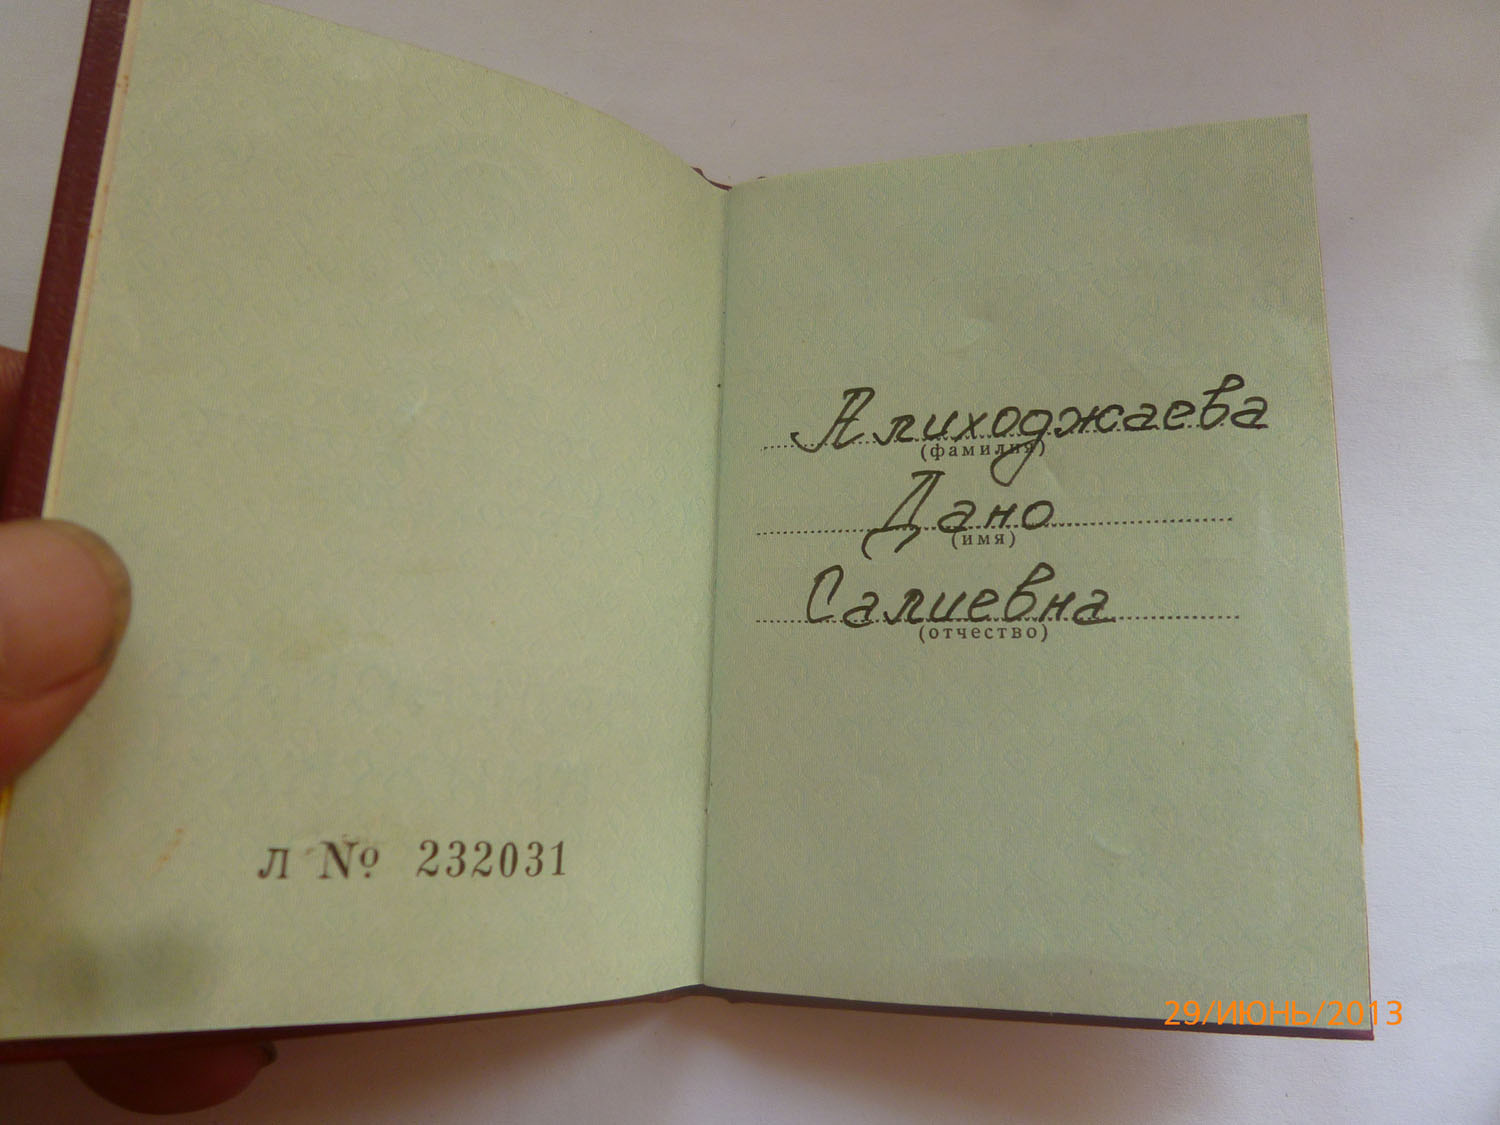 Л № 232031
Алиходжаева
(фамилия)
Дано
(имя)
Салиевна
(отчество)
29/ИЮНЬ/2013